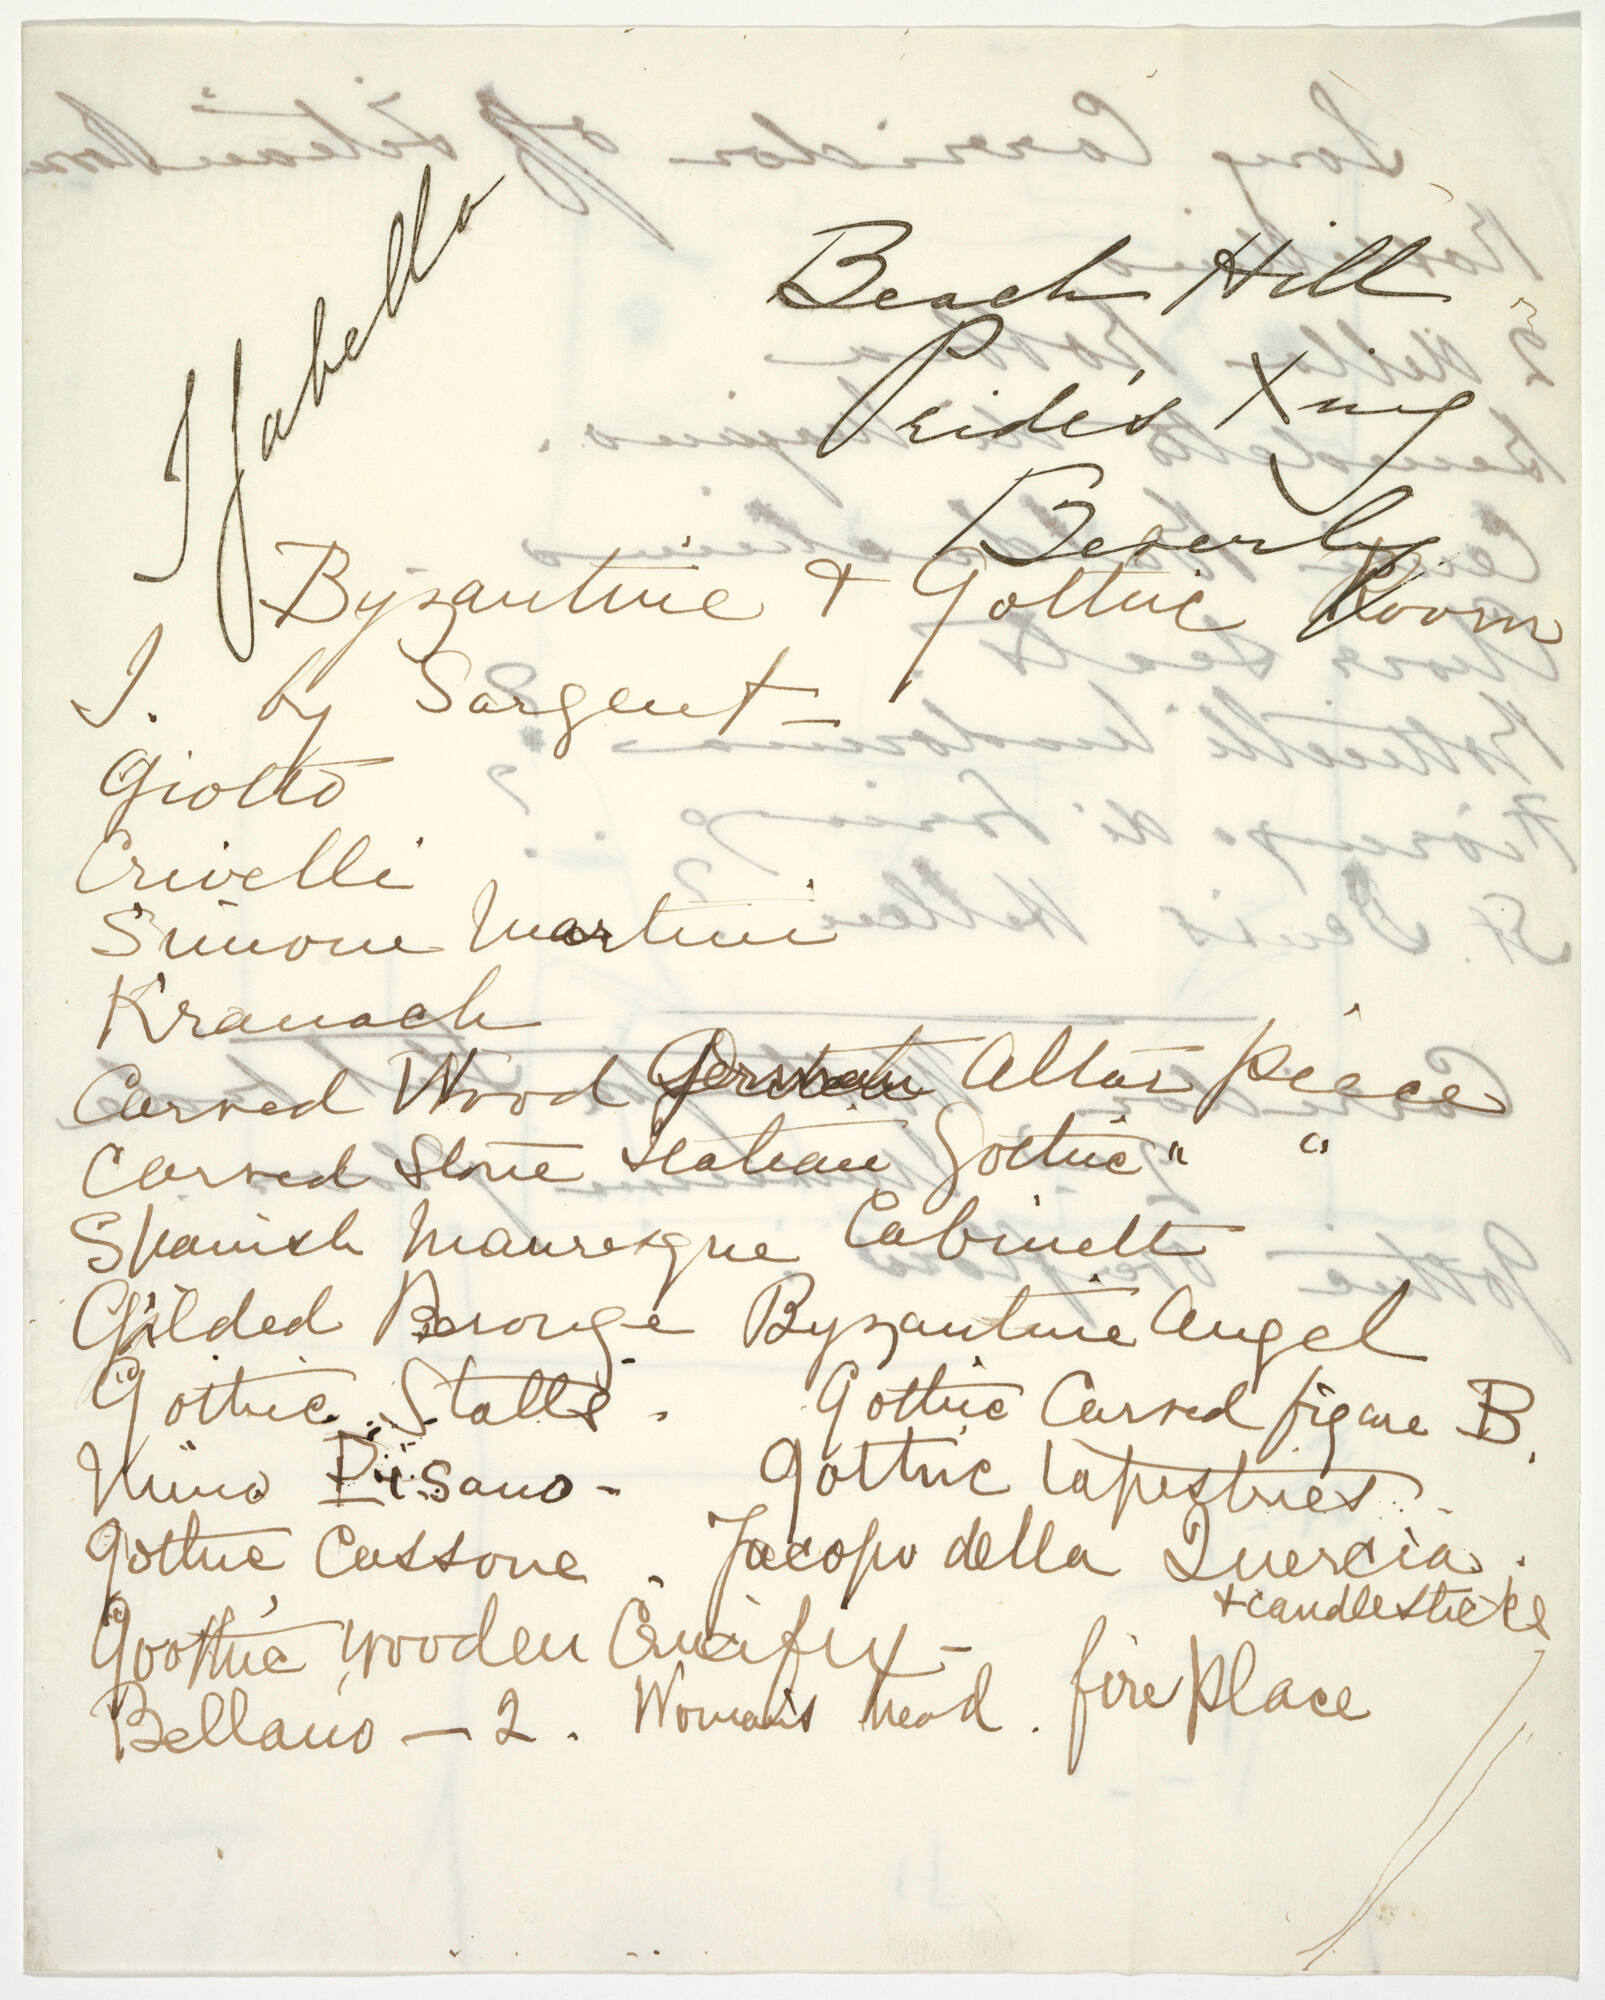 Isabella
Beach Hill
Pride's Xing
Beverly
Byzantine + Gothic Room
I. by Sargent -
Giotto
Crivelli
Simone Martini
Kranach
Carved Wood German Altar piece
Carved Stone Italian Gothic " "
Spanish Mauresque Cabinett
Gilded Bronze Byzantine Angel
Gothic Stalls. Gothic Carved figure B.
Nino Pisano - Gothic tapestries.
Gothic Cassone. Jacopo della Quercia.
+ candlesticks
Goothic wooden Crucifix -
Bellano - 2. Woman's head. fireplace